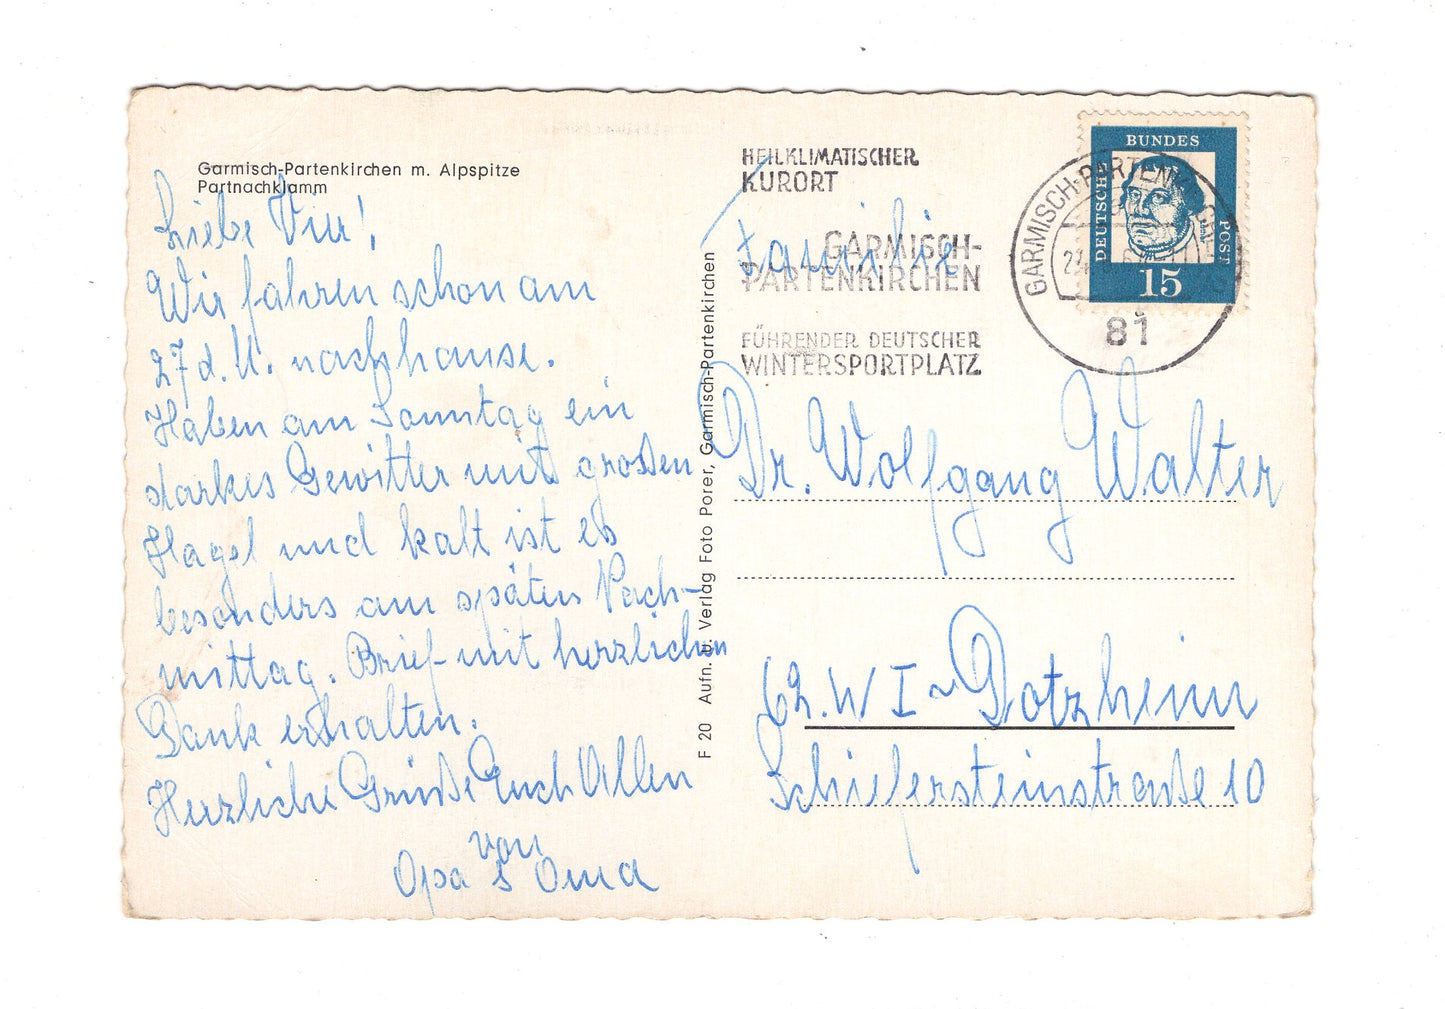 Garmisch-Partenkirchen m. Alpspitze
Partnachklamm
Liebe Vier!
Wir fahren schon am
27 d. M. nachhause.
Haben am Sonntag ein
starkes Gewitter mit großen
Hagel und kalt ist es
besonders am späten Nach-
mittag. Brief mit herzlichen
Dank erhalten.
Herzliche Grüße Euch Allen
von
Opa & Oma
F 20 Aufn. u. Verlag Foto Porer, Garmisch-Partenkirchen
HEILKLIMATISCHER
KURORT
GARMISCH-
PARTENKIRCHEN
FÜHRENDER DEUTSCHER
WINTERSPORTPLATZ
GARMISCH-PARTENKIRCHEN
81
DEUTSCHE
BUNDES
POST
15
Familie
Dr. Wolfgang Walter
62. WI-Dotzheim
Schiefersteinstraße 10